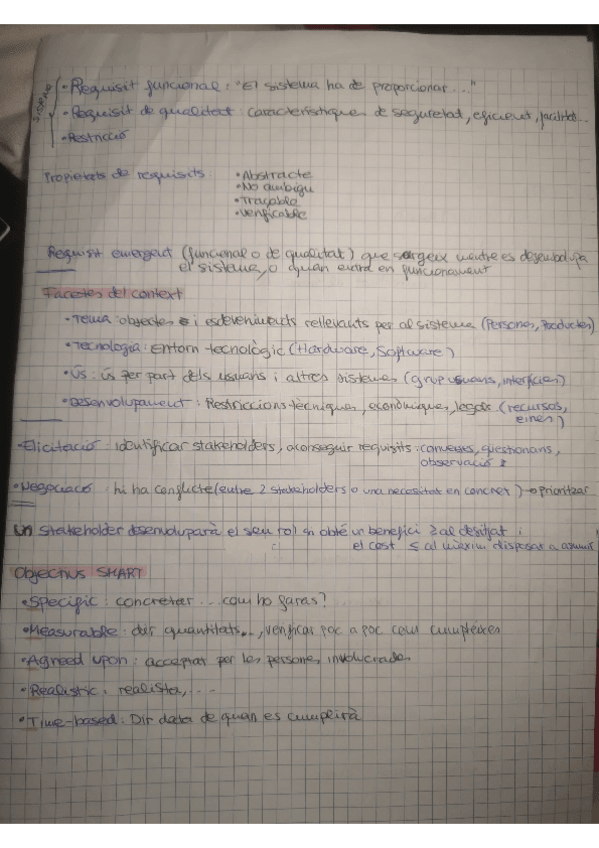 • Requisit funcional: "El sistema ha de proporcionar..."
• Requisit de qualitat: característiques de seguretat, eficient, facilitat...
• Restricció
Propietats de requisits:
• Abstracte
• No ambigu
• Traçable
• Verificable
Requisit emergent (funcional o de qualitat) que sorgeix mentre es desenvolupa
el sistema, o quan entra en funcionament
Facetes del context
• Tema: objectes i esdeveniments rellevants per al sistema (Persones, Productes)
• Tecnologia: Entorn tecnològic (Hardware, Software)
• Ús: ús per part dels usuaris i altres sistemes (grup usuaris, interfícies)
• Desenvolupament: Restriccions tècniques, econòmiques, legals (recursos,
eines)
• Elicitació: identificar stakeholders, aconseguir requisits: converses, qüestionaris,
observació
• Negociació: hi ha conflicte (entre 2 stakeholders o una necessitat en concret) → prioritzar
Un stakeholder desenvoluparà el seu rol si obté un benefici ≥ al desitjat i
el cost ≤ al màxim disposat a assumir
Objectius SMART
• Specific: concretar... com ho faras?
• Measurable: dir quantitats..., verificar poc a poc com cumpleixes
• Agreed upon: acceptar per les persones involucrades
• Realistic: realista, ...
• Time-based: Dir data de quan es cumplirà